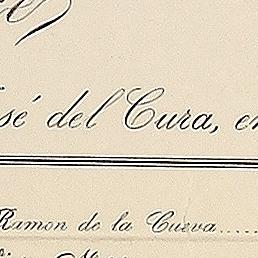 sé del Cura, en
Ramon de la Cueva.....